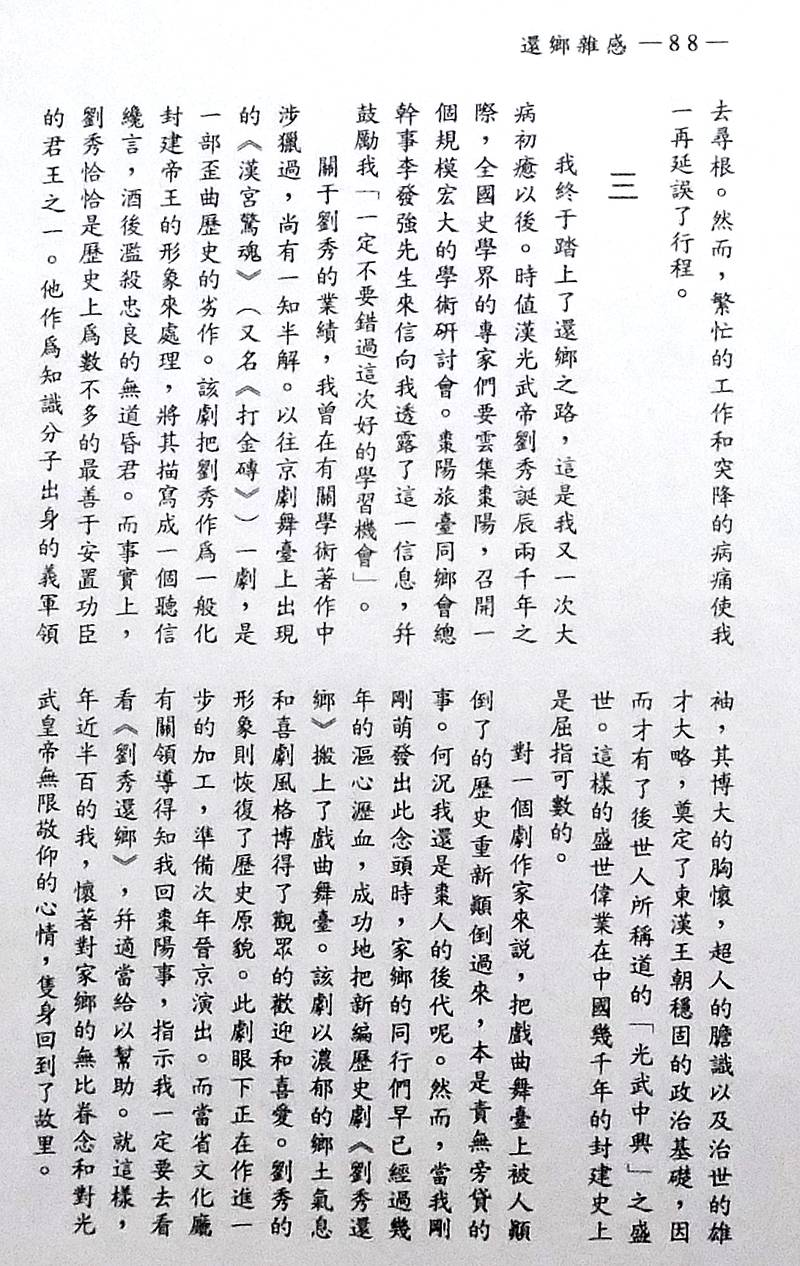 還鄉雜感 —88—
去尋根。然而，繁忙的工作和突降的病痛使我
一再延誤了行程。
三
我終于踏上了還鄉之路，這是我又一次大
病初癒以後。時值漢光武帝劉秀誕辰兩千年之
際，全國史學界的專家們要雲集棗陽，召開一
個規模宏大的學術研討會。棗陽旅臺同鄉會總
幹事李發強先生來信向我透露了這一信息，幷
鼓勵我「一定不要錯過這次好的學習機會」。
關于劉秀的業績，我曾在有關學術著作中
涉獵過，尚有一知半解。以往京劇舞臺上出現
的《漢宮驚魂》（又名《打金磚》）一劇，是
一部歪曲歷史的劣作。該劇把劉秀作爲一般化
封建帝王的形象來處理，將其描寫成一個聽信
纔言，酒後濫殺忠良的無道昏君。而事實上，
劉秀恰恰是歷史上爲數不多的最善于安置功臣
的君王之一。他作爲知識分子出身的義軍領
袖，其博大的胸懷，超人的膽識以及治世的雄
才大略，奠定了東漢王朝穩固的政治基礎，因
而才有了後世人所稱道的「光武中興」之盛
世。這樣的盛世偉業在中國幾千年的封建史上
是屈指可數的。
對一個劇作家來説，把戲曲舞臺上被人顛
倒了的歷史重新顛倒過來，本是責無旁貸的
事。何況我還是棗人的後代呢。然而，當我剛
剛萌發出此念頭時，家鄉的同行們早已經過幾
年的漚心瀝血，成功地把新編歷史劇《劉秀還
鄉》搬上了戲曲舞臺。該劇以濃郁的鄉土氣息
和喜劇風格博得了觀眾的歡迎和喜愛。劉秀的
形象則恢復了歷史原貌。此劇眼下正在作進一
步的加工，準備次年晉京演出。而當省文化廳
有關領導得知我回棗陽事，指示我一定要去看
看《劉秀還鄉》，幷適當給以幫助。就這樣，
年近半百的我，懷著對家鄉的無比眷念和對光
武皇帝無限敬仰的心情，隻身回到了故里。